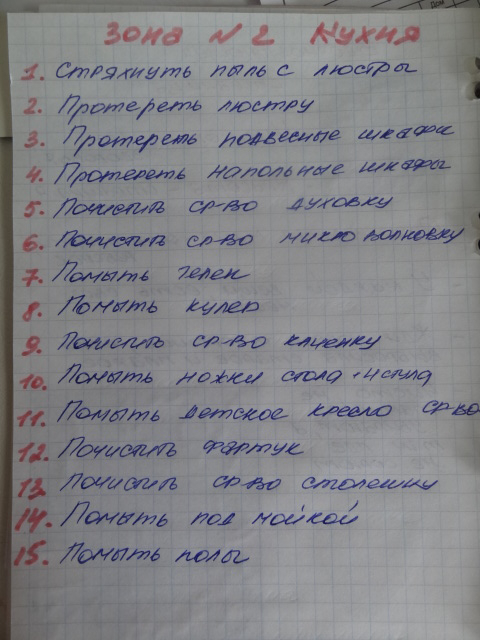 Зона № 2 Кухня
1. Стряхнуть пыль с люстры
2. Протереть люстру
3. Протереть подвесные шкафы
4. Протереть напольные шкафы
5. Почистить ср-во духовку
6. Почистить ср-во микроволновку
7. Помыть телек
8. Помыть кулер
9. Почистить ср-во клиенку
10. Помыть ножки стола + 4 стула
11. Помыть детское кресло ср-во
12. Почистить фартук
13. Почистить ср-во столешку
14. Помыть под мойкой
15. Помыть полы